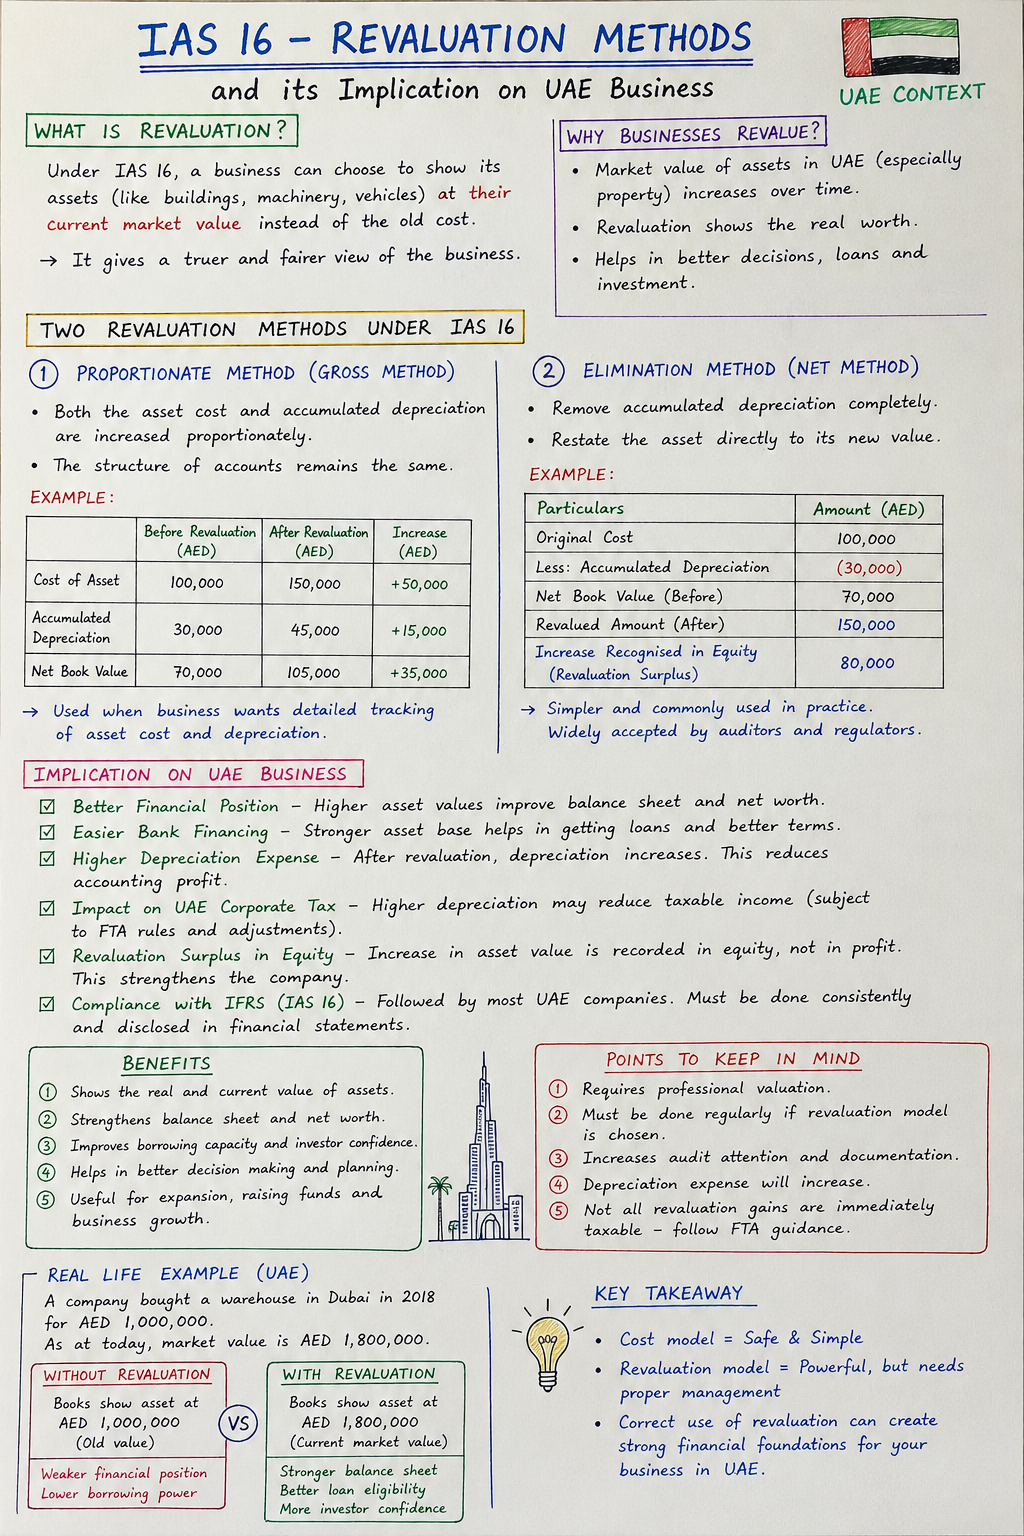 IAS 16 – REVALUATION METHODS
and its Implication on UAE Business
UAE CONTEXT
WHAT IS REVALUATION?
Under IAS 16, a business can choose to show its
assets (like buildings, machinery, vehicles) at their
current market value instead of the old cost.
→ It gives a truer and fairer view of the business.
WHY BUSINESSES REVALUE?
• Market value of assets in UAE (especially
property) increases over time.
• Revaluation shows the real worth.
• Helps in better decisions, loans and
investment.
TWO REVALUATION METHODS UNDER IAS 16
1 PROPORTIONATE METHOD (GROSS METHOD)
• Both the asset cost and accumulated depreciation
are increased proportionately.
• The structure of accounts remains the same.
EXAMPLE:
Before Revaluation (AED) After Revaluation (AED) Increase (AED)
Cost of Asset 100,000 150,000 +50,000
Accumulated Depreciation 30,000 45,000 +15,000
Net Book Value 70,000 105,000 +35,000
→ Used when business wants detailed tracking
of asset cost and depreciation.
2 ELIMINATION METHOD (NET METHOD)
• Remove accumulated depreciation completely.
• Restate the asset directly to its new value.
EXAMPLE:
Particulars Amount (AED)
Original Cost 100,000
Less: Accumulated Depreciation (30,000)
Net Book Value (Before) 70,000
Revalued Amount (After) 150,000
Increase Recognised in Equity
(Revaluation Surplus) 80,000
→ Simpler and commonly used in practice.
Widely accepted by auditors and regulators.
IMPLICATION ON UAE BUSINESS
☑ Better Financial Position – Higher asset values improve balance sheet and net worth.
☑ Easier Bank Financing – Stronger asset base helps in getting loans and better terms.
☑ Higher Depreciation Expense – After revaluation, depreciation increases. This reduces
accounting profit.
☑ Impact on UAE Corporate Tax – Higher depreciation may reduce taxable income (subject
to FTA rules and adjustments).
☑ Revaluation Surplus in Equity – Increase in asset value is recorded in equity, not in profit.
This strengthens the company.
☑ Compliance with IFRS (IAS 16) – Followed by most UAE companies. Must be done consistently
and disclosed in financial statements.
BENEFITS
1 Shows the real and current value of assets.
2 Strengthens balance sheet and net worth.
3 Improves borrowing capacity and investor confidence.
4 Helps in better decision making and planning.
5 Useful for expansion, raising funds and
business growth.
POINTS TO KEEP IN MIND
1 Requires professional valuation.
2 Must be done regularly if revaluation model
is chosen.
3 Increases audit attention and documentation.
4 Depreciation expense will increase.
5 Not all revaluation gains are immediately
taxable – follow FTA guidance.
REAL LIFE EXAMPLE (UAE)
A company bought a warehouse in Dubai in 2018
for AED 1,000,000.
As at today, market value is AED 1,800,000.
WITHOUT REVALUATION
Books show asset at
AED 1,000,000
(Old value)
Weaker financial position
Lower borrowing power
VS
WITH REVALUATION
Books show asset at
AED 1,800,000
(Current market value)
Stronger balance sheet
Better loan eligibility
More investor confidence
KEY TAKEAWAY
• Cost model = Safe & Simple
• Revaluation model = Powerful, but needs
proper management
• Correct use of revaluation can create
strong financial foundations for your
business in UAE.